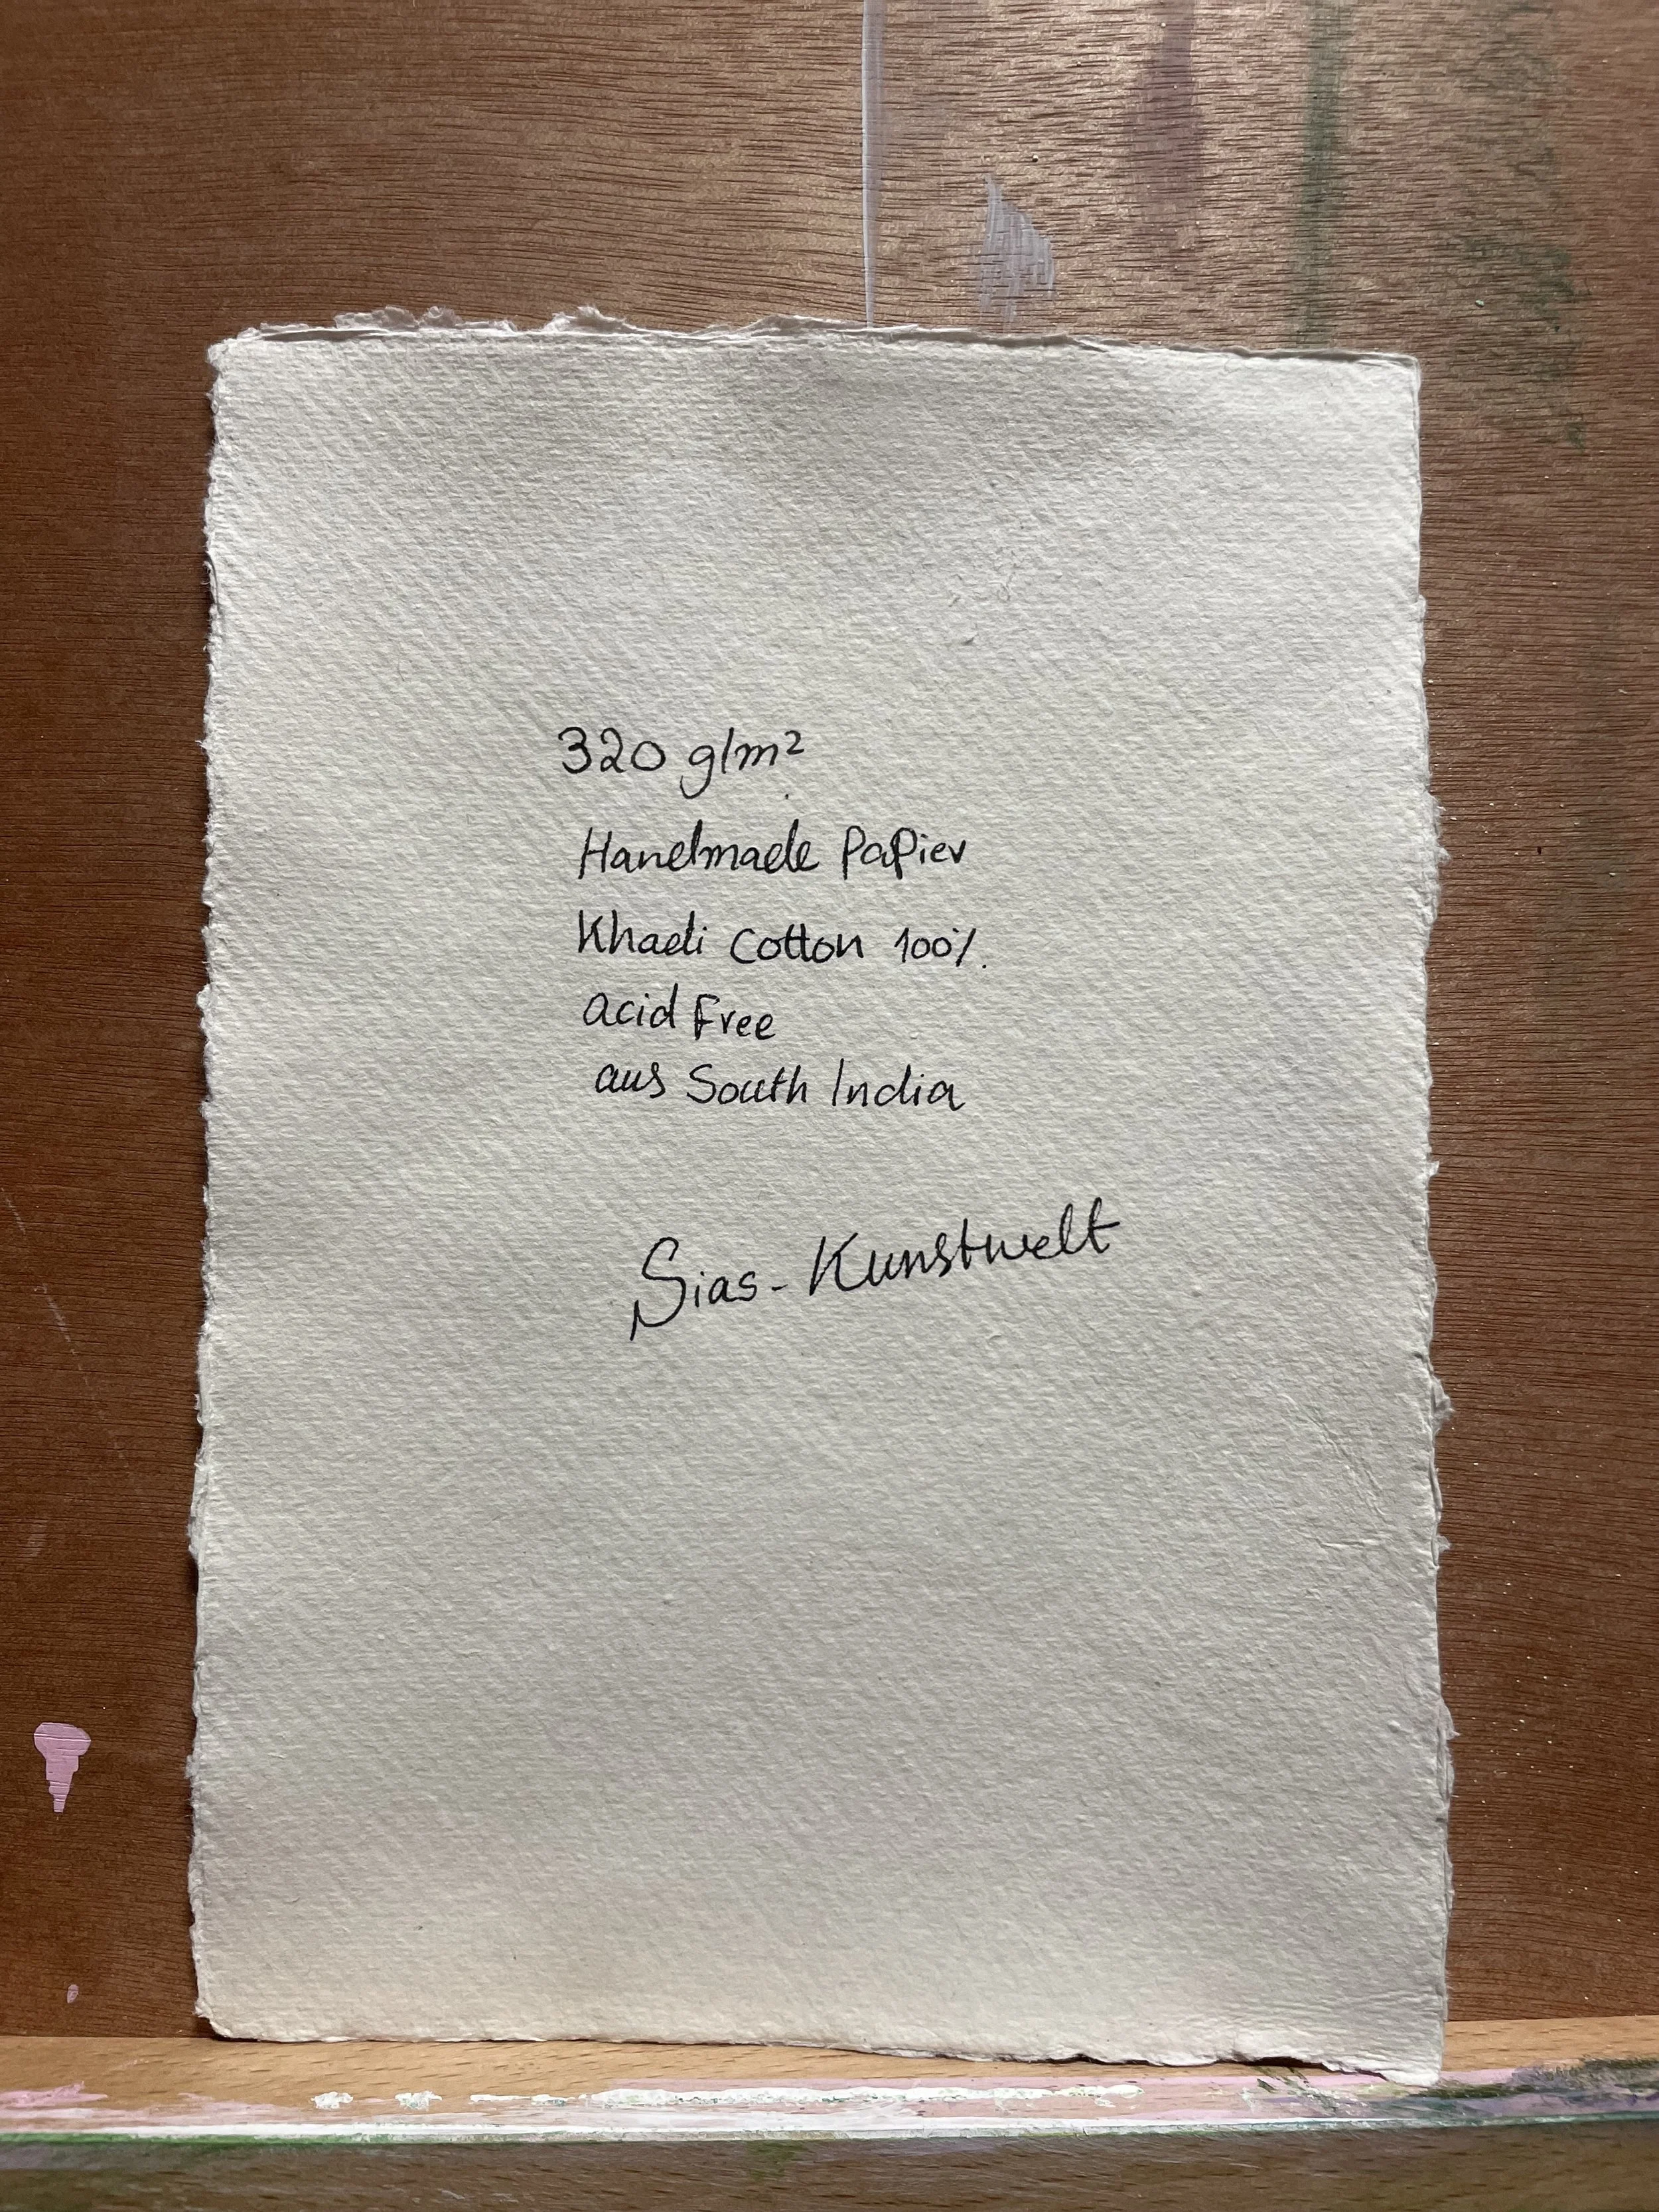 320 g/m²
Handmade Papier
Khadi Cotton 100%
acid Free
aus South India
Sias-Kunstwelt